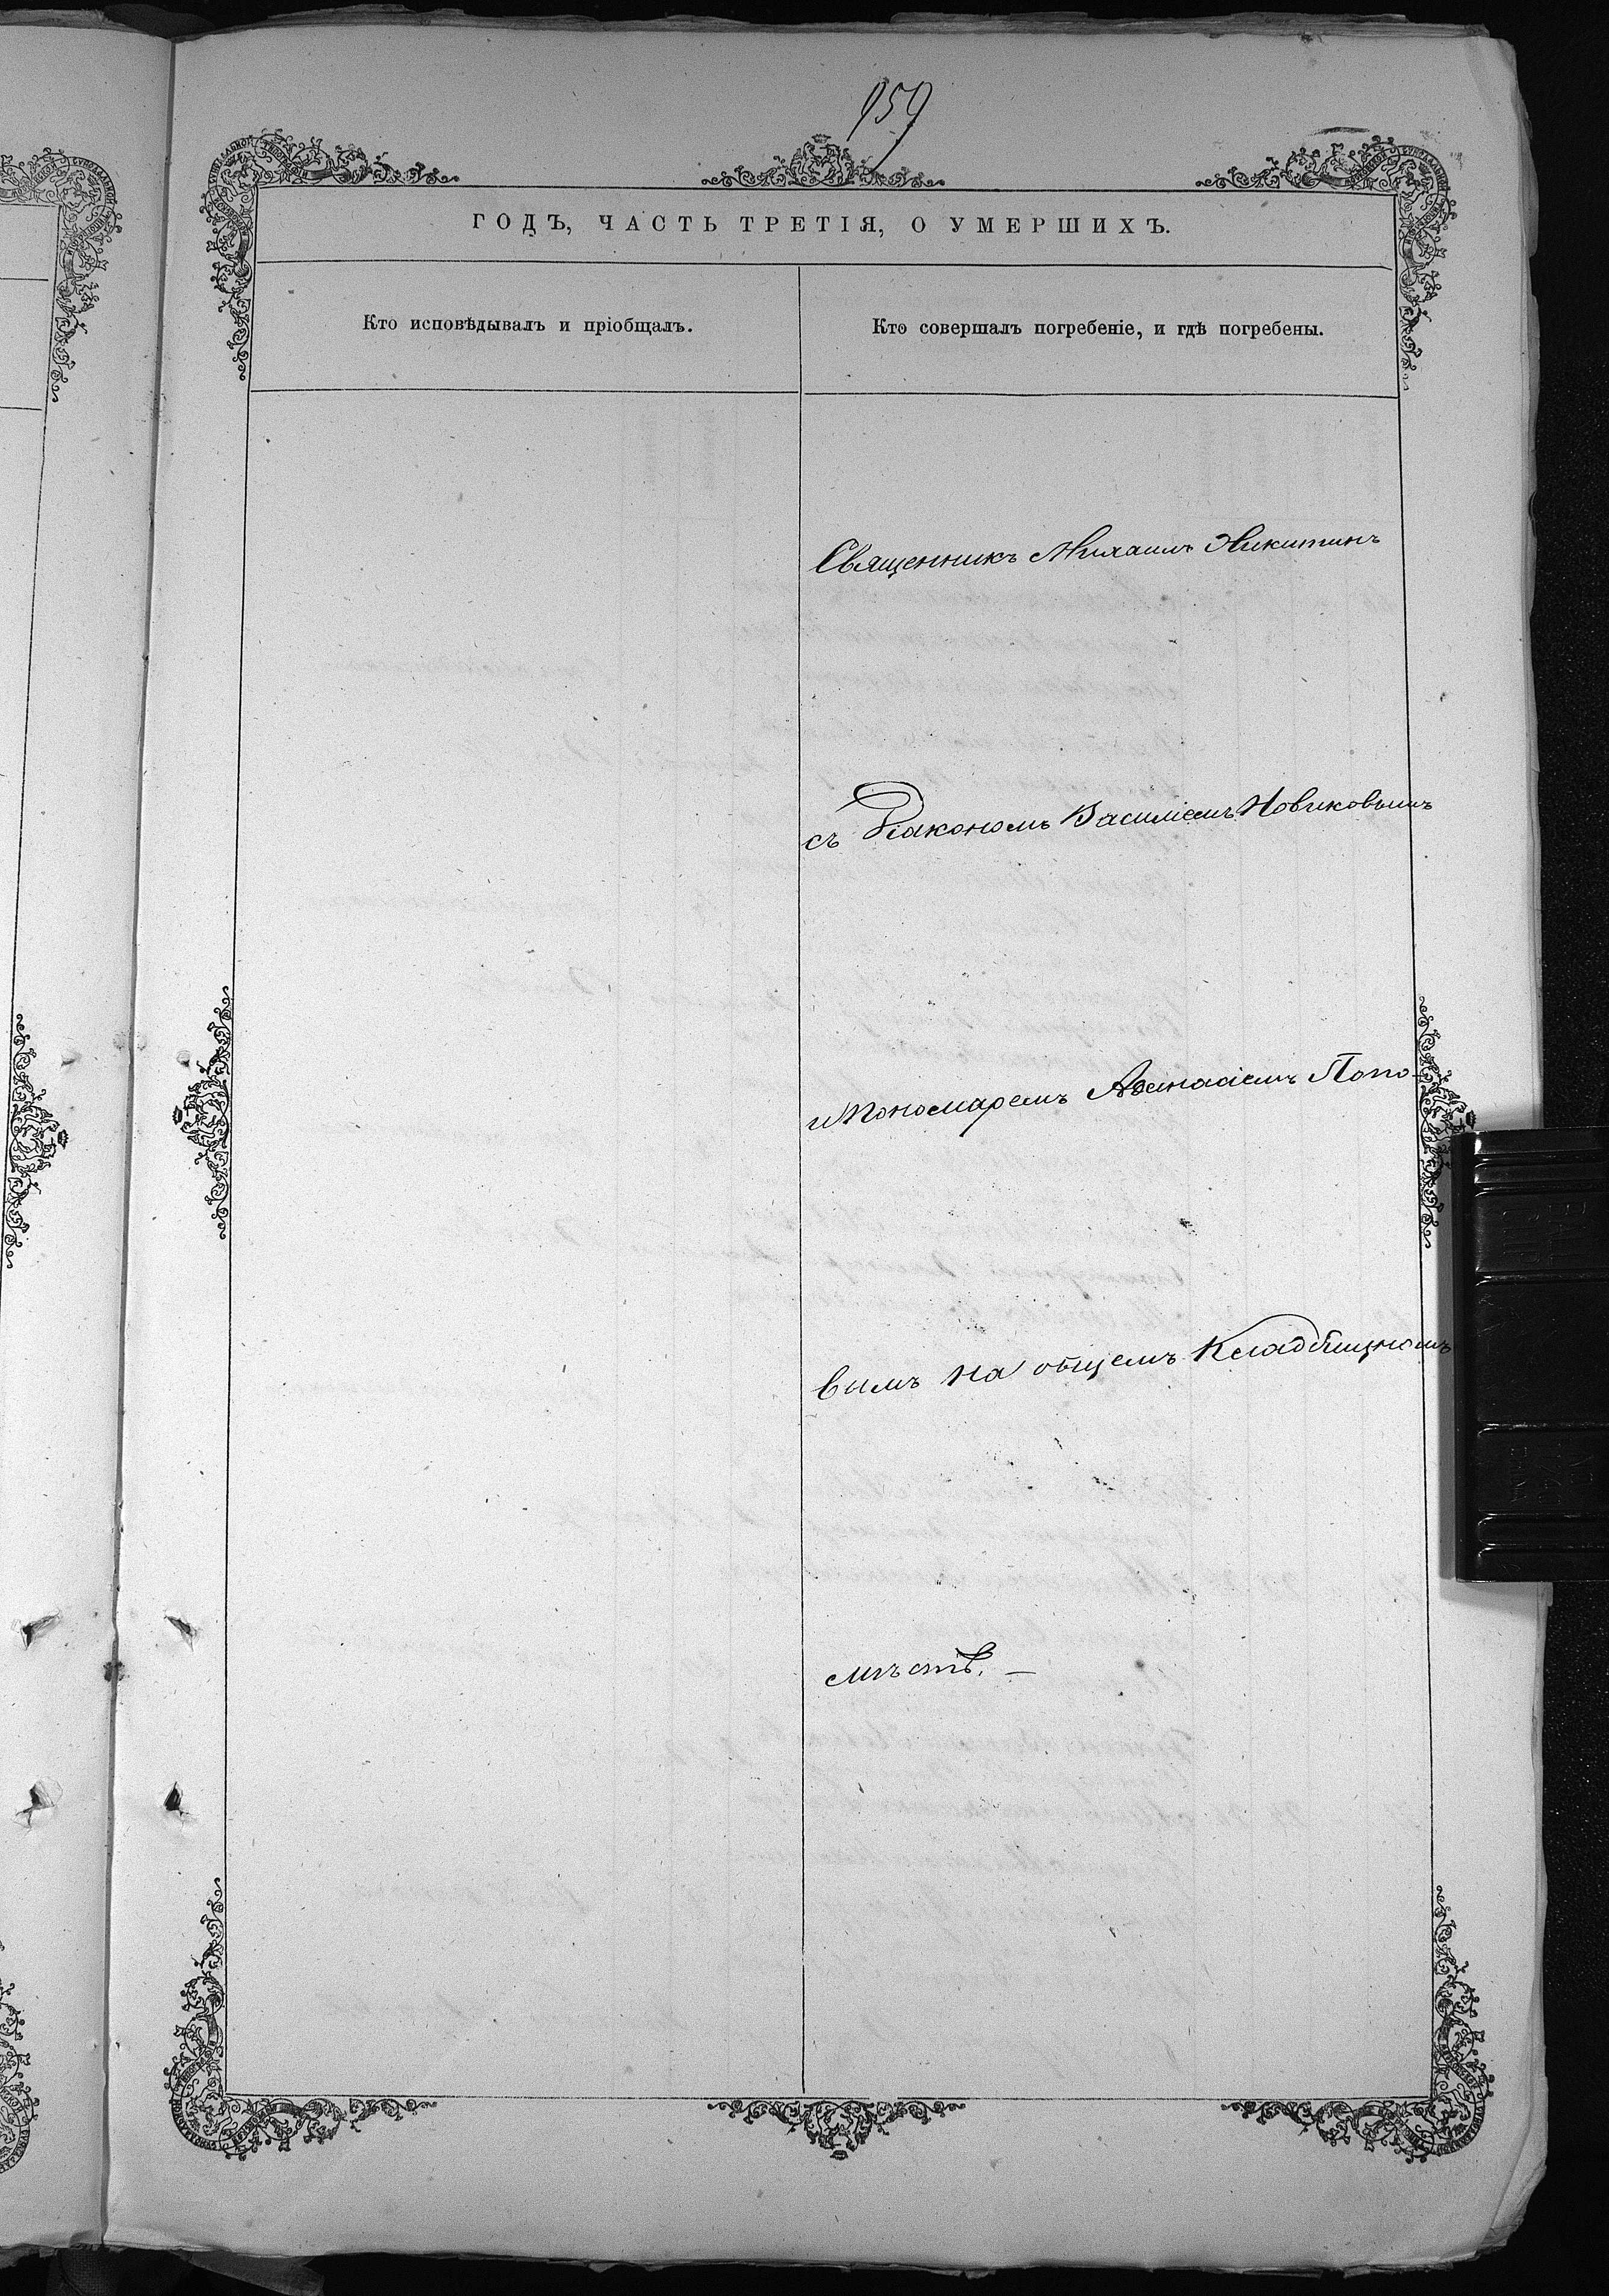 159
ГОДЪ, ЧАСТЬ ТРЕТІЯ, О УМЕРШИХЪ.
Кто исповѣдывалъ и пріобщалъ.
Кто совершалъ погребеніе, и гдѣ погребены.
Священникъ Михаилъ Никитинъ
съ Діакономъ Василіемъ Новиковымъ
и Пономаремъ Аѳанасіемъ Попо-
вымъ на общемъ Кладбищномъ
мѣстѣ. —